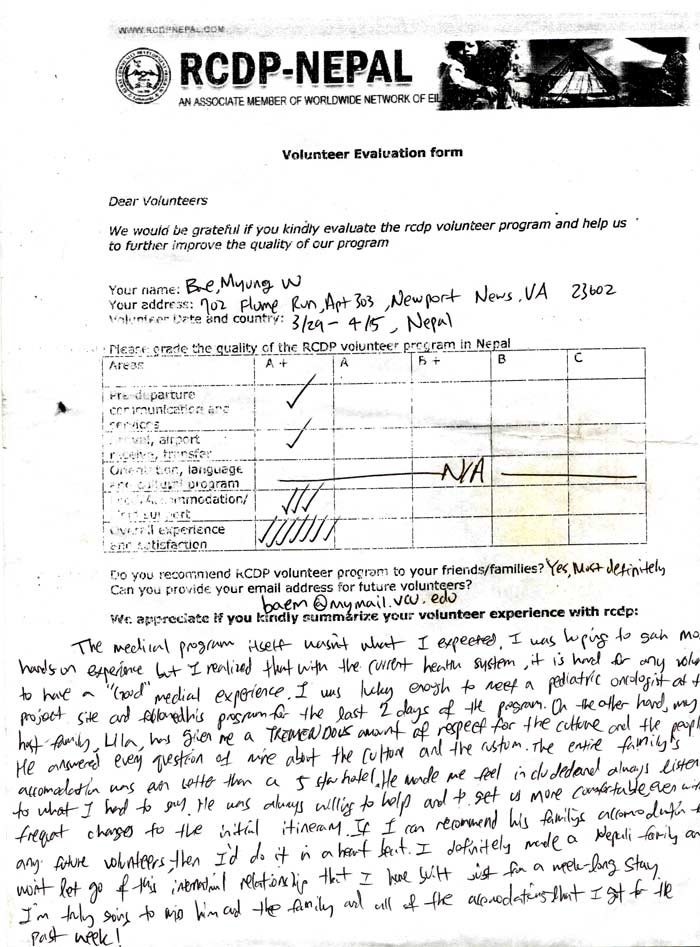 WWW.RCDPNEPAL.COM
RCDP-NEPAL
AN ASSOCIATE MEMBER OF WORLDWIDE NETWORK OF EIL
Volunteer Evaluation form
Dear Volunteers
We would be grateful if you kindly evaluate the rcdp volunteer program and help us
to further improve the quality of our program
Your name: Bae, Myung W
Your address: 702 Flume Run, Apt 303, Newport News, VA 23602
Volunteer Date and country: 3/29 - 4/5, Nepal
Please grade the quality of the RCDP volunteer program in Nepal
Areas A+ A B+ B C
Pre-departure
communication and
services
Arrival, airport
receive, transfer
Orientation, language
and cultural program N/A
accommodation/
support
Overall experience
and satisfaction
Do you recommend RCDP volunteer program to your friends/families? Yes, Most definitely
Can you provide your email address for future volunteers?
baem@mymail.vcu.edu
We appreciate if you kindly summarize your volunteer experience with rcdp:
The medical program itself wasn't what I expected. I was hoping to gain mo
hands on experience but I realized that with the current health system, it is hard for any volun
to have a "Good" medical experience. I was lucky enough to meet a pediatric oncologist at t
project site and followed his program for the last 2 days of the program. On the other hand, my
host family, Lila, has given me a TREMENDOUS amount of respect for the culture and the peopl
He answered every question of mine about the culture and the custom. The entire family's
accomodation was even better than a 5 star hotel. He made me feel included and always listen
to what I had to say. He was always willing to help and to get us more comfortable, even with
frequent changes to the initial itinerary. If I can recommend his familys accomodation t
any future volunteers, then I'd do it in a heart beat. I definitely made a Nepali family an
won't let go of this international relationship that I have built just for a week-long stay.
I'm truly going to miss him and the family and all of the accomodations that I got for the
past week!